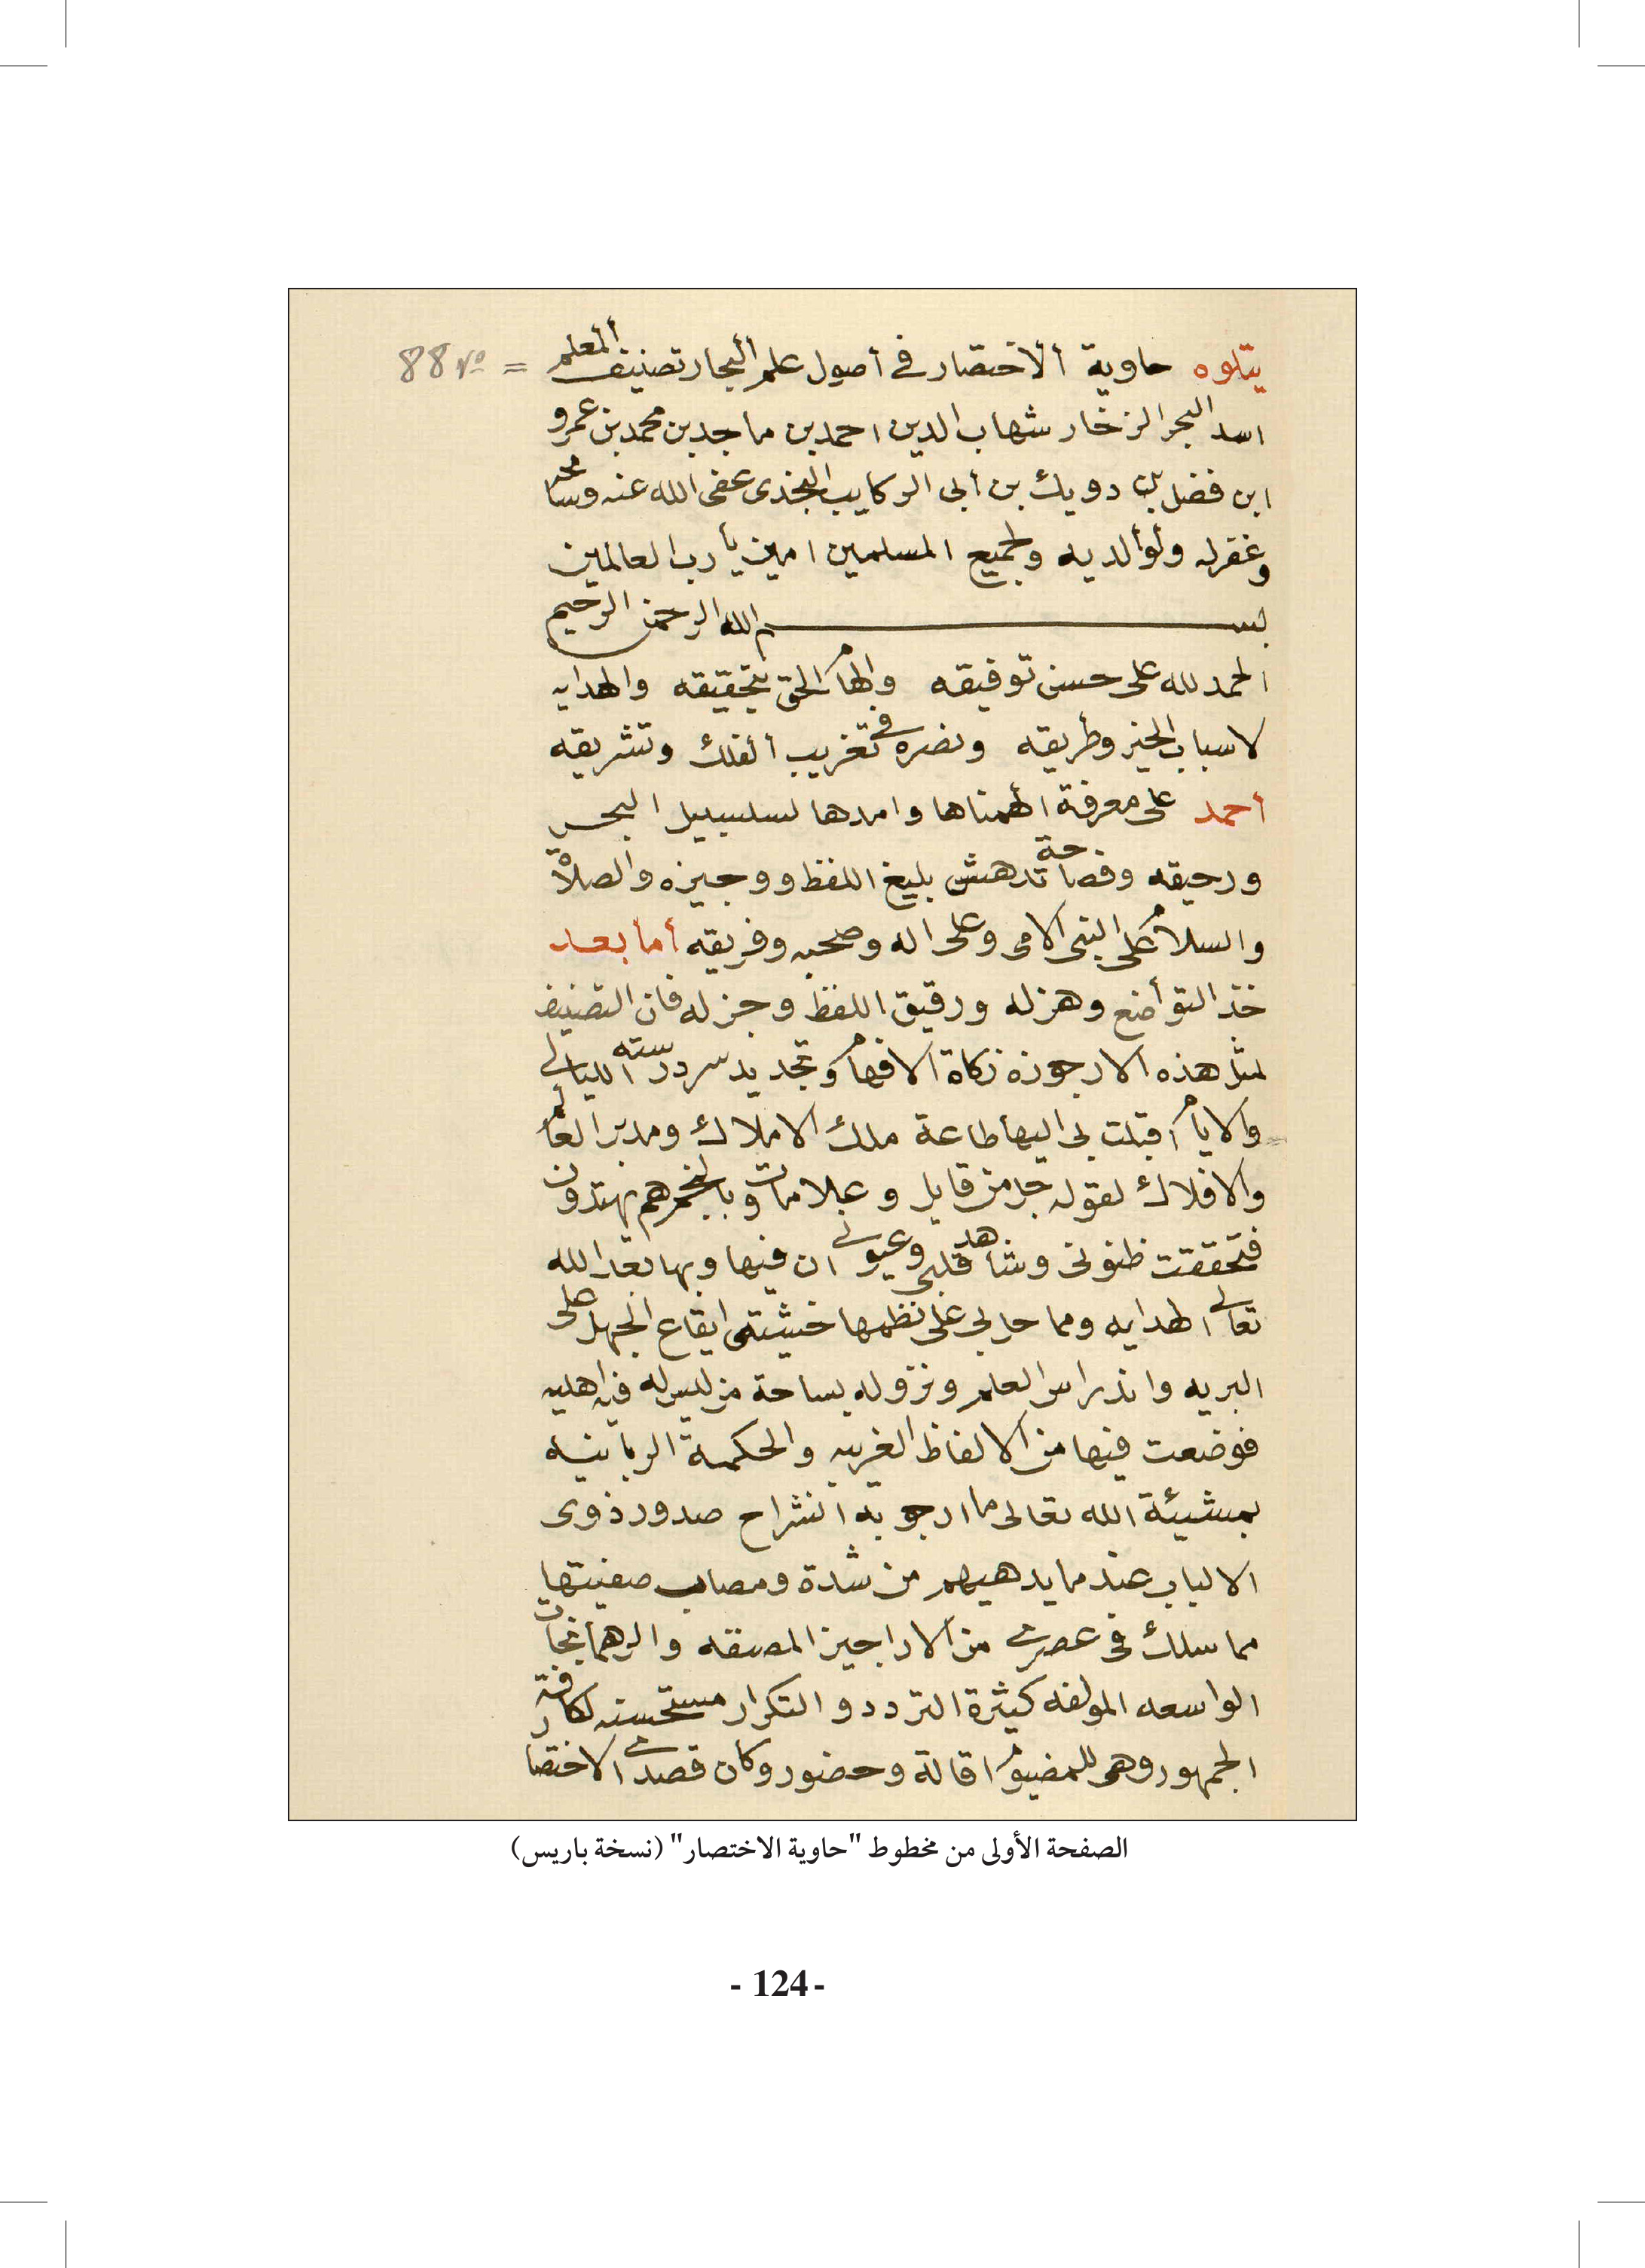 يتلوه حاوية ألاختصار في أصول علم ألبحار تصنيف ألمعلم = 88 vo
اسد البحر الزخار شهاب الدين احمد بن ماجد بن محمد بن عمرو
ابن فضل بن دويك بن أبى الركايب النجدى عفى الله عنه وسامحه
وغفر له ولوألديه ولجميع المسلمين امين يأرب العالمين
بسم الله الرحمن الرحيم
الحمد لله على حسن توفيقه والهام الحق بتحقيقه والهدايه
لاسباب الخير وطريقه ونصره في تغريب ألفلك وتشريقه
أحمد على معرفة الهمناها وامدها لسلسبيل البحر
ورحيقه وفصاحة تدهش بليغ اللفظ ووجيزه والصلاة
والسلام على النبى الامى وعلى اله وصحبه وفريقه أما بعد
خذ التوأضع وهزله ورقيق اللفظ وجزله فان التصنيف
لمثل هذه الارجوزه زكاة الافهام وتجديد سرد درسته الليالي
والايام أقبلت بى اليها طاعة ملك الاملاك ومدبر العالم
والافلاك لقوله جل من قايل وعلامات وبالنجم هم يهتدون
فتحققت ظنونى وشاهد قلبى وعيوني ان فيها وبها بعد الله
تعالي الهدايه ومما حل بى على نظمها خشيتى ايقاع الجهل على
البريه واندراس العلم ونزوله بساحة من ليس له فيه اهليه
فوضعت فيها من الالفاظ الغريبه والحكمة الربانيه
بمشيئة الله تعالى ما ارجو به انشراح صدور ذوى
الالباب عند ما يدهيهم من شدة ومصاب صفيتها
مما سلك فى عصري من الاراجيز المصنفه والرهمانجات
الواسعه المولفه كثيرة التردد والتكرار مستحسنه لكافة
الجمهور وهى للمضيوم اقالة وحضور وكان قصدي الاختصار
الصفحة الأولى من مخطوط "حاوية الاختصار" (نسخة باريس)
- 124 -